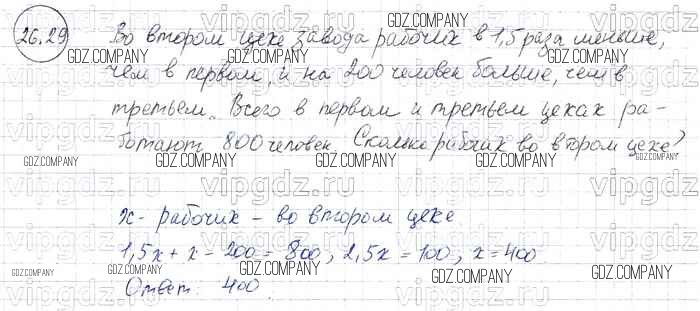 26.29 Во втором цехе завода рабочих в 1,5 раза меньше,
чем в первом, и на 200 человек больше, чем в
третьем. Всего в первом и третьем цехах ра-
ботают 800 человек. Сколько рабочих во втором цехе?
x - рабочих - во втором цехе
1,5x + x - 200 = 800, 2,5x = 100, x = 400
Ответ: 400.
GDZ.COMPANY
vipgdz.ru